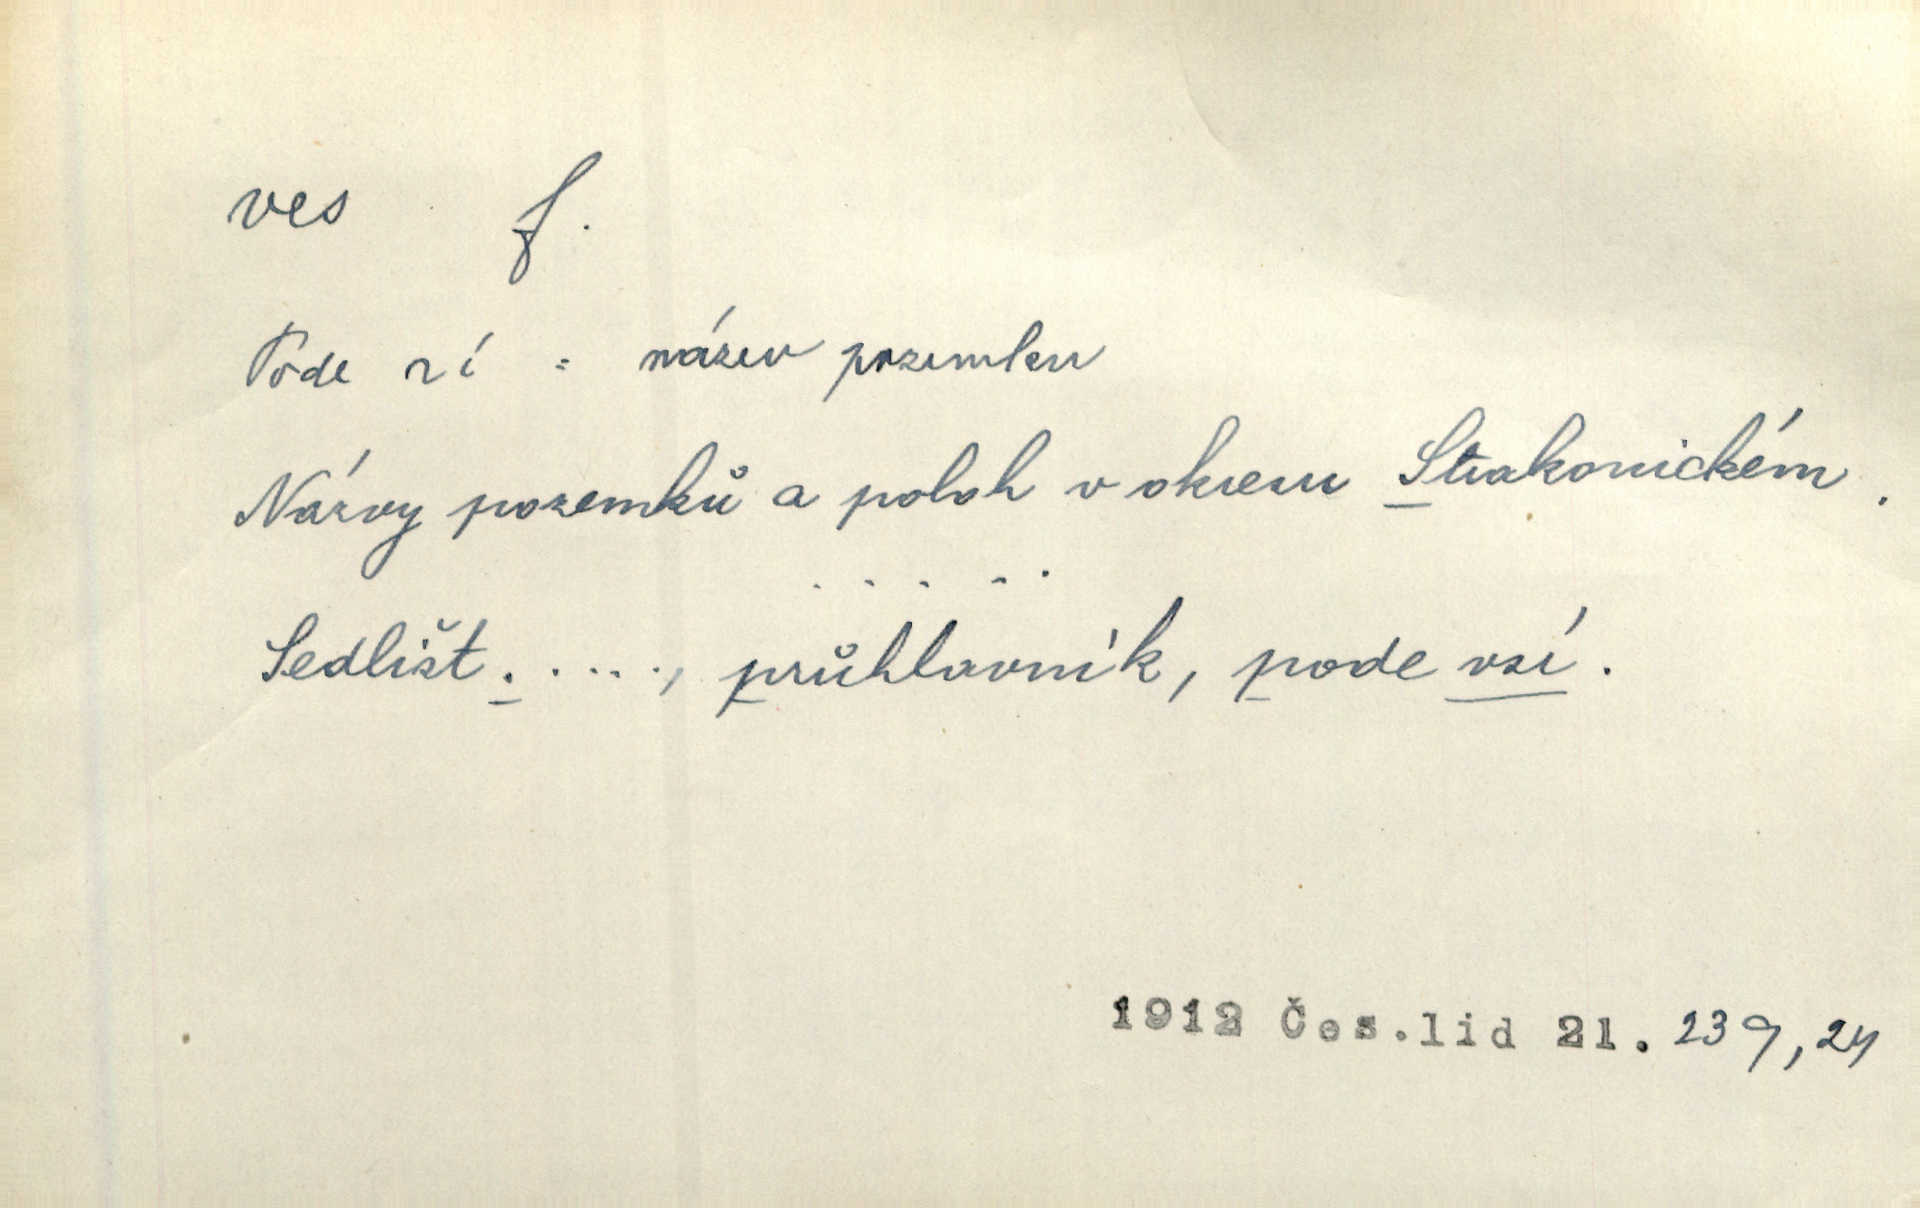 ves f.
Pode ~í = název pozemku
Názvy pozemků a poloh v okresu Strakonickém.
. . . . .
Sedlišt. . . . ., průhlavník, pode vsí.
1912 Čes.lid 21. 239, 24